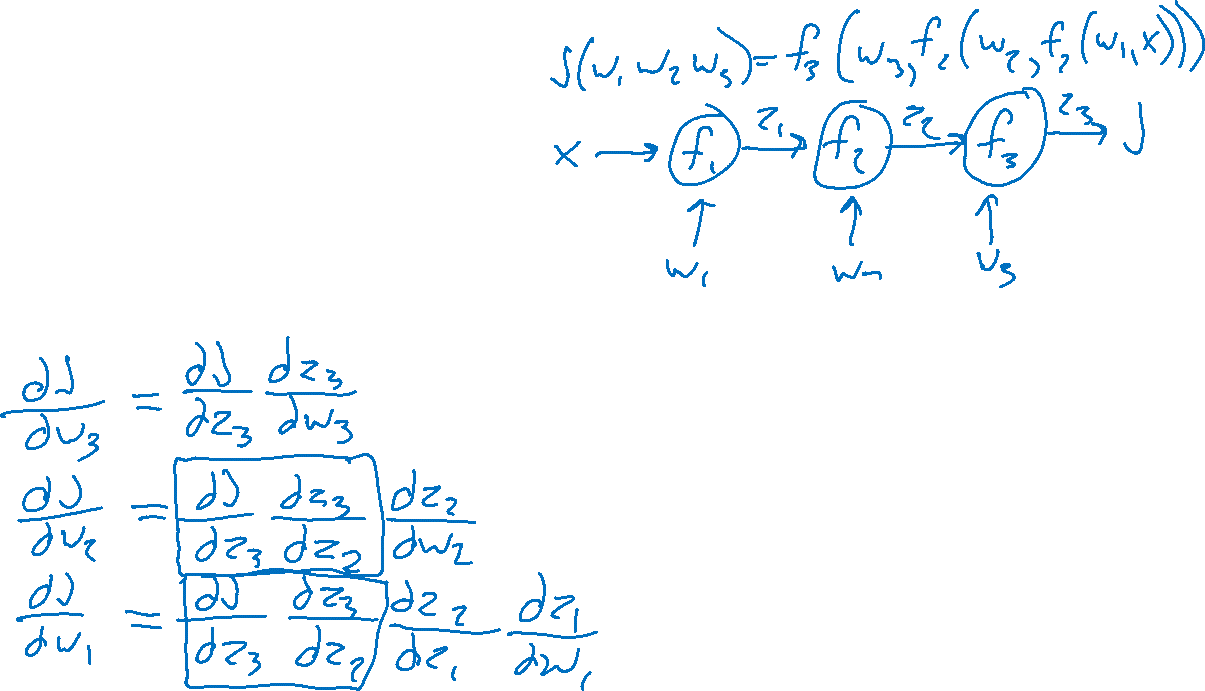 J(w₁ w₂ w₃) = f₃(w₃, f₂(w₂, f₂(w₁, x)))
x → f₁ z₁ → f₂ z₂ → f₃ z₃ → J
w₁ w₂ w₃
dJ/dw₃ = dJ/dz₃ dz₃/dw₃
dJ/dw₂ = dJ/dz₃ dz₃/dz₂ dz₂/dw₂
dJ/dw₁ = dJ/dz₃ dz₃/dz₂ dz₂/dz₁ dz₁/dw₁